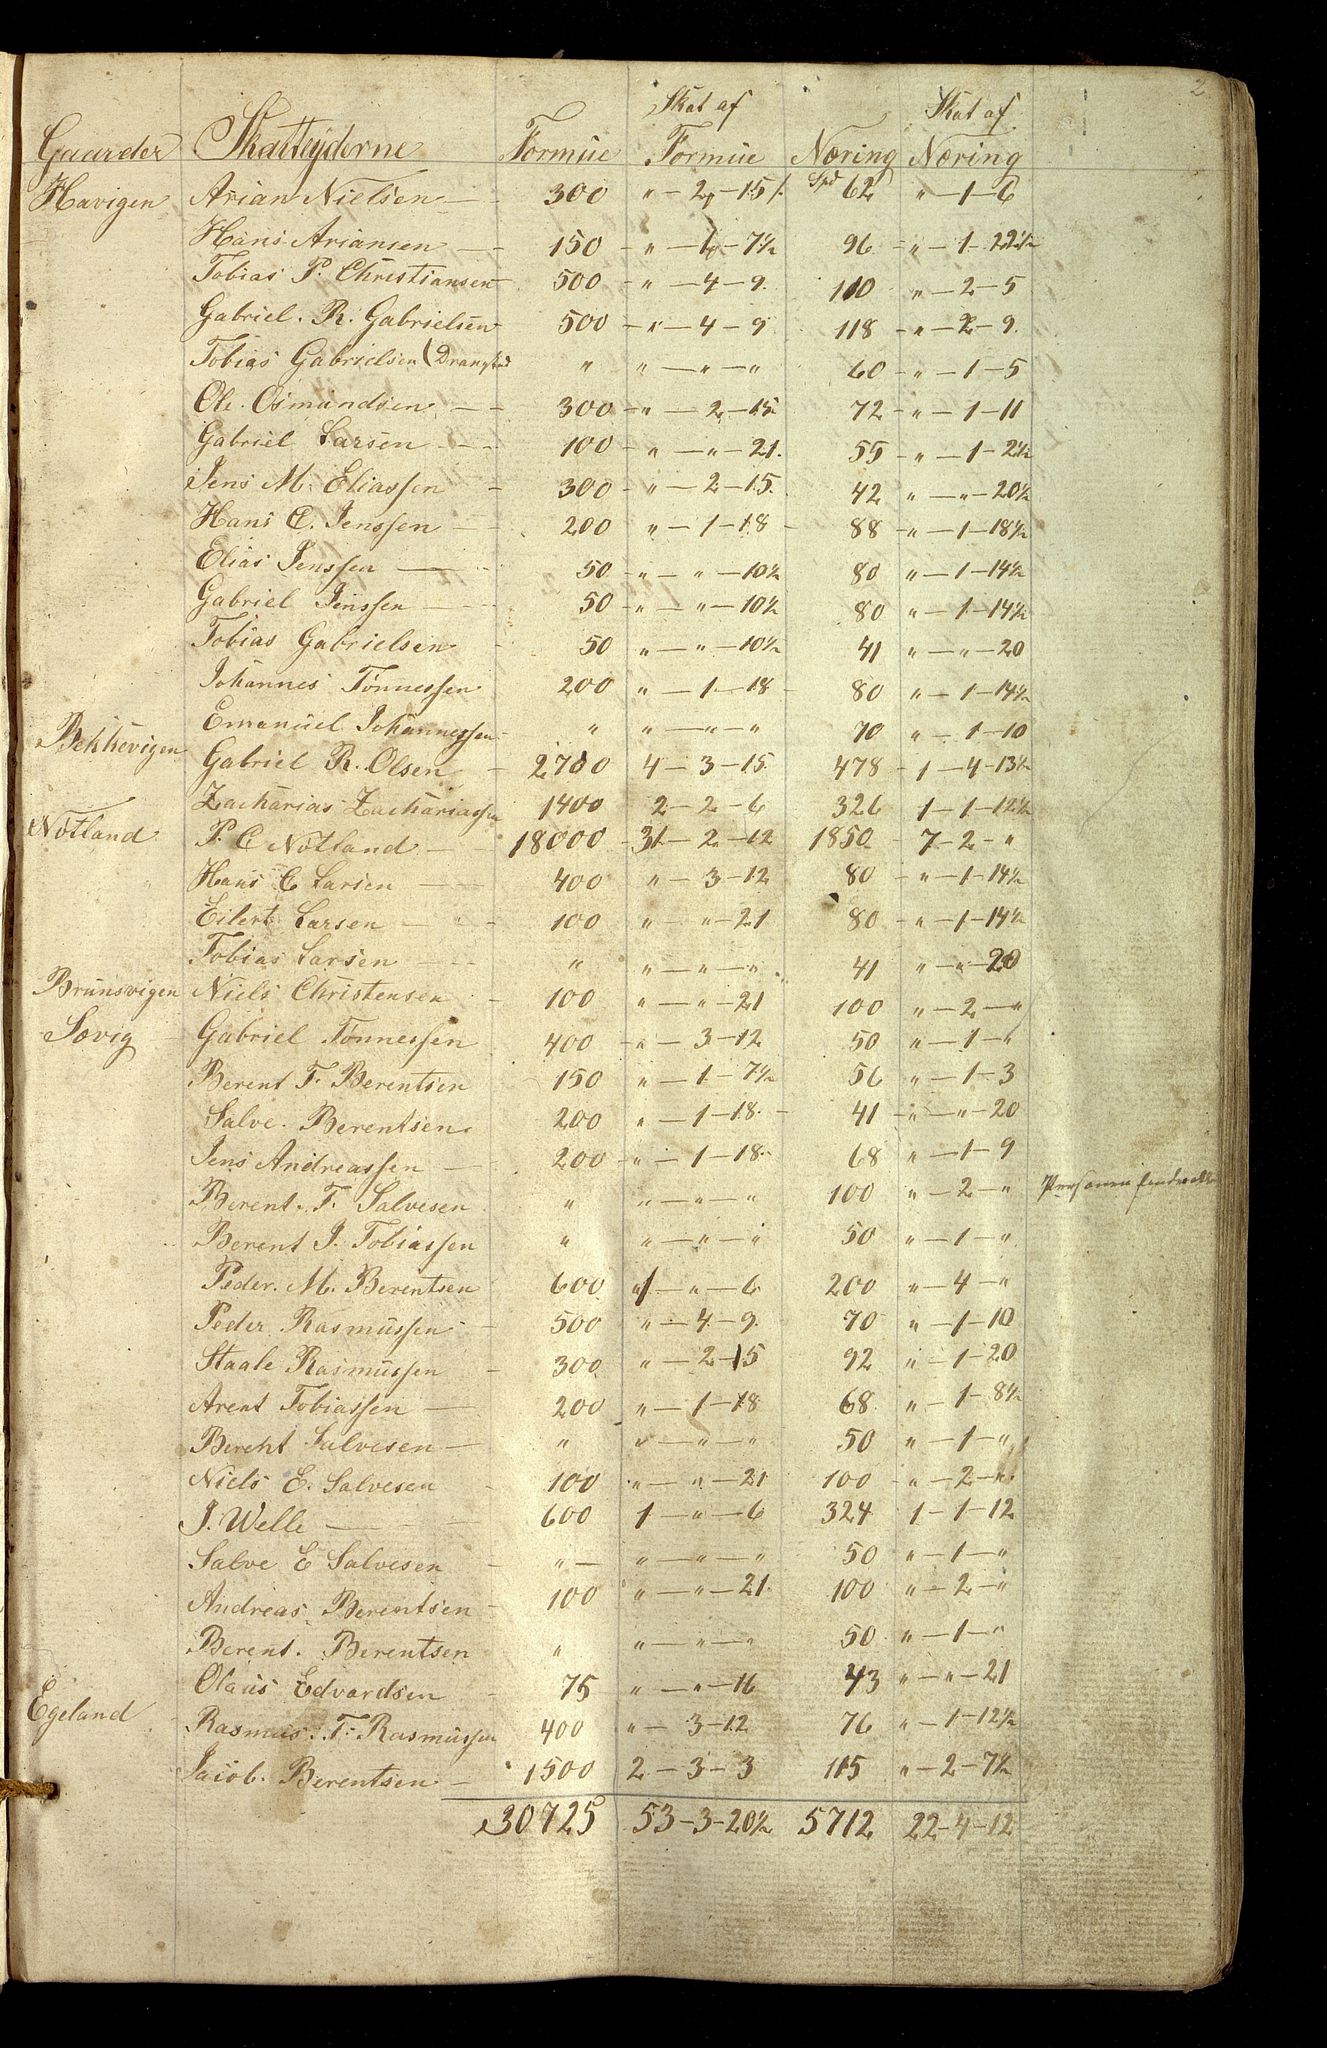 2
Skat af Skat af
Gaarder Skatteÿderne Formue Formue Næring Næring
Havigen Arian Nielsen — 300 " — 2 — 15 Spd 62 " — 1 — 6
Hans Ariansen — 150 — " — 1 — 7½ 96 — " — 1 — 22½
Tobias P. Christiansen — 500 — " — 4 — 9. 110 " — 2 — 5
Gabriel. R. Gabrielsen 500 — " — 4 — 9 118 — " — 2 — 9.
Tobias Gabrielsen " " — " — " 60 — " — 1 — 5
Ole Osmundsen — 300 — " — 2 — 15 72 — " — 1 — 11
Gabriel Larsen — 100 — " — " — 21. 55 — " — 1 — 2½
Jens M. Eliassen — 300 — " — 2 — 15. 42 " — " — 20½
Hans E. Jenssen — 200 " — 1 — 18 — 88 — " — 1 — 18½
Elias Jenssen — 50 — " — " — 10½ 80 " — 1 — 14½
Gabriel Jenssen — 50 — " — " — 10½ 80 " — 1 — 14½
Tobias Gabrielsen — 50 " — " — 10½ 41 " — " — 20
Johannes Tønnessen 200 " — 1 — 18 — 80 " — 1 — 14½
Emanuel Johannessen — " " — " — " 70 " — 1 — 10
Bekkevigen Gabriel R. Olsen — 2700 4 — 3 — 15 478 — 1 — 4 — 13½
Zacharias Zachariassen 1400 2 — 2 — 6 326 1 — 1 — 12½
Nøtland P. C Nøtland — 18000 — 31 — 2 — 12 1850 — 7 — 2 — "
Hans C Larsen — 400 " — 3 — 12 80 — " — 1 — 14½
Eilert Larsen — 100 " " — 21 80 — " — 1 — 14½
Tobias Larsen — " " — " — " 41 " — " — 20
Brunsvigen Niels Christensen — 100 " — " — 21 100 " — 2 — "
Sævig Gabriel Tønnessen 400 — " — 3 — 12 50 " — 1 — "
Berent F. Berentsen 150 " — 1 — 7½ 56 " — 1 — 3
Salve. Berentsen. 200 " — 1 — 18. — 41 — " — " — 20
Jens Andreassen — 200 — " — 1 — 18 — 68 " — 1 — 9
Berent. F. Salvesen " " — " — " 100 " — 2 — " Personen
Berent J. Tobiassen " " — " — " 50 " — 1 — "
Peder. M. Berentsen 600 1 — " — 6 200 " — 4 — "
Peder Rasmussen — 500 " — 4 — 9. 70 " — 1 — 10
Staale Rasmussen — 300 " — 2 — 15 92 " — 1 — 20
Arent Tobiassen — 200 " — 1 — 18 68 " — 1 — 8½
Berent Salvesen — " " — " — " 50 " — 1 — "
Niels E. Salvesen 100 " — " — 21 100 " — 2 — "
J. Welle — 600 1 — " — 6 324 1 — 1 — 12
Salve E Salvesen — " — " — " — " 50 " — 1 — "
Andreas Berentsen — 100 " — " — 21 100 " — 2 — "
Berent. Berentsen " " — " — " 50 " — 1 — "
Olaus Edvardsen — 75 " — " — 16 43 " — " — 21
Egeland Rasmus. T. Rasmussen 400 " — 3 — 12 76 " — 1 — 12½
Jacob. Berentsen — 1500 2 — 3 — 3 115 " — 2 — 7½
30725 53 — 3 — 20½ 5712 22 — 4 — 12